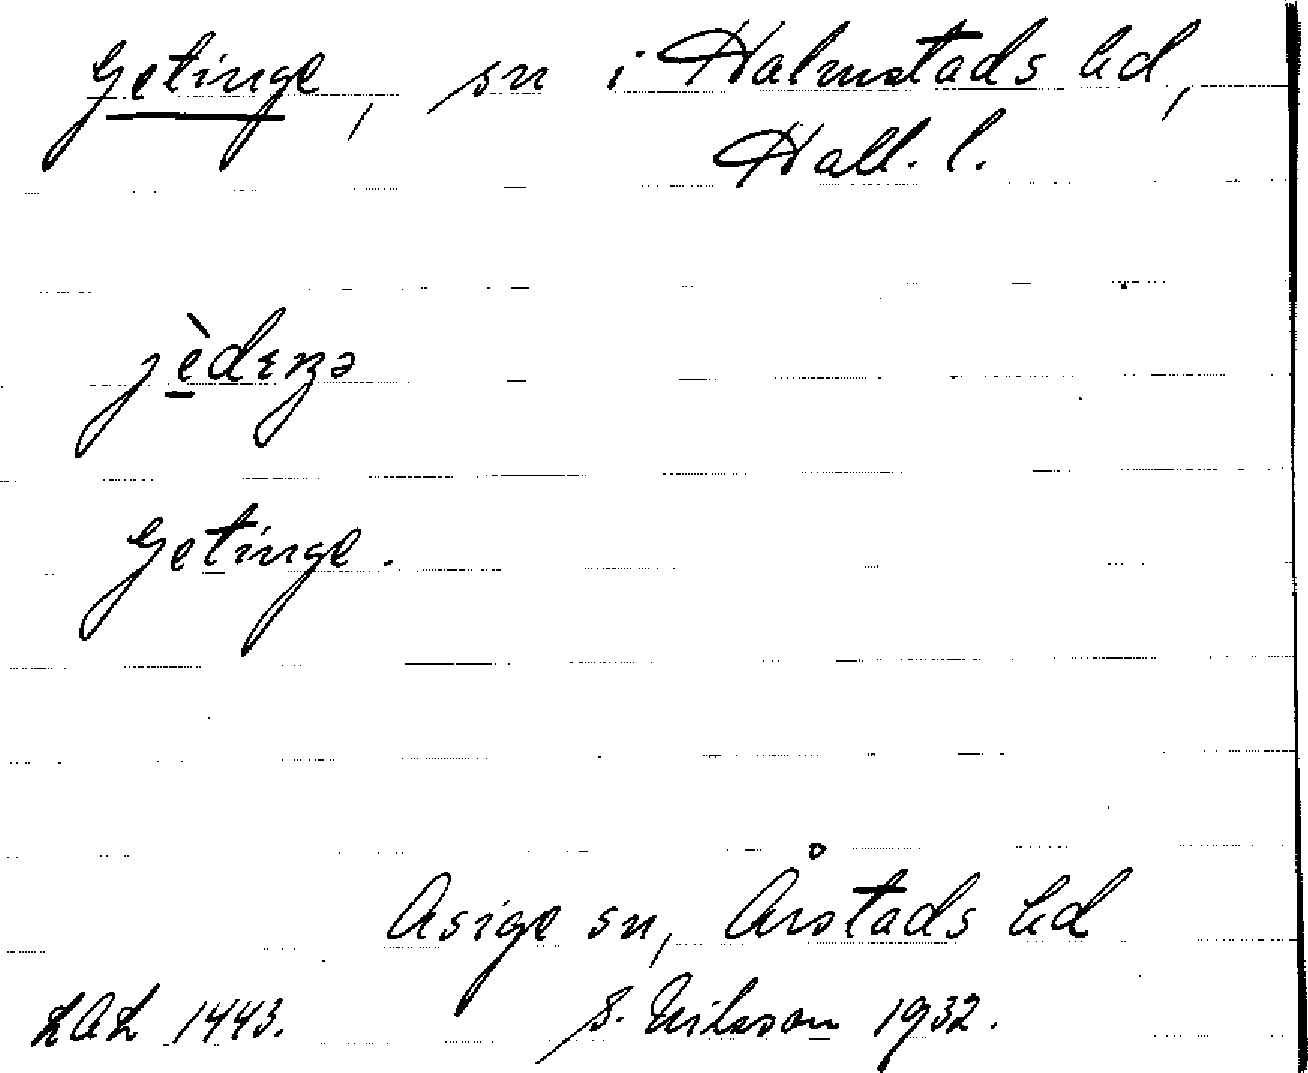 Getinge, sn i Halmstads hd,
Hall. l.
jèdɛŋə
Getinge.
Asige sn, Årstads hd
LAL 1443. S. Nilsson 1932.